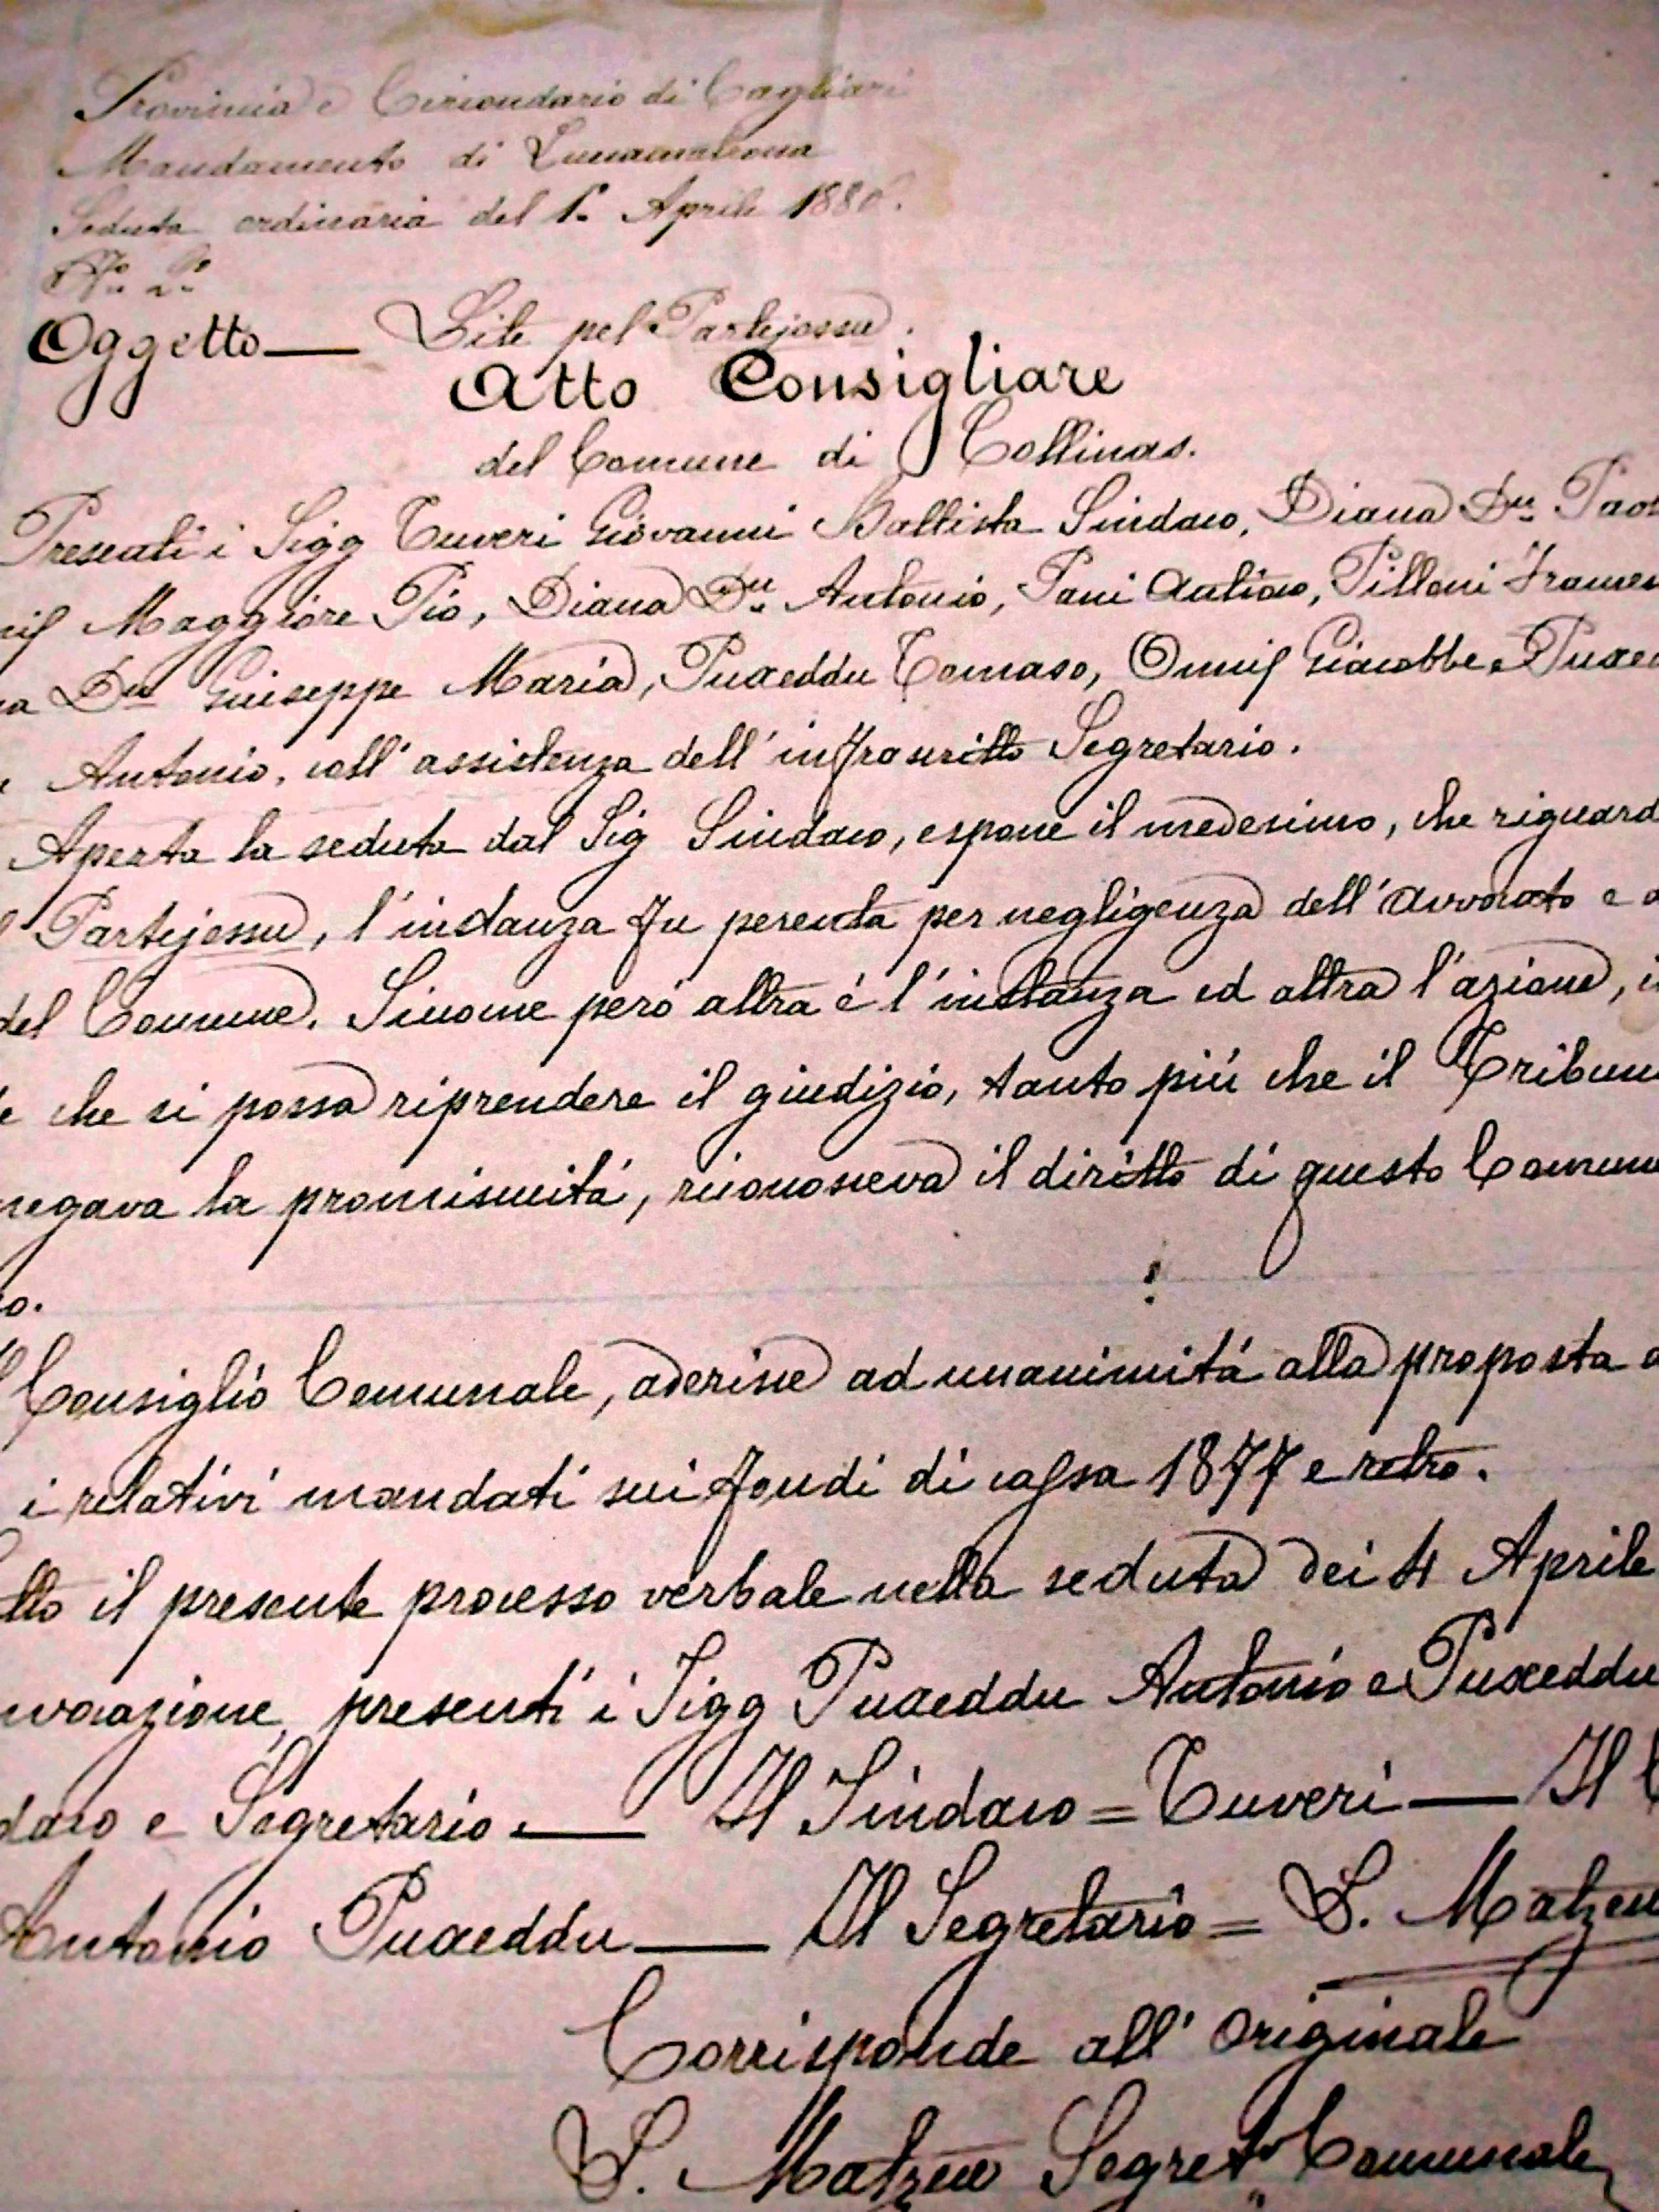 Provincia e Circondario di Cagliari
Mandamento di Lunamatrona
Seduta ordinaria del 1º Aprile 1880.
Nº 2º
Oggetto — Lite pel Partejossu.
Atto Consigliare
del Comune di Collinas.
Presenti i Sigg Tuveri Giovanni Battista Sindaco, Diana Dr. Paol
Maggiore Pio, Diana Dr. Antonio, Pani Antioco, Pilloni Frances
Dr. Giuseppe Maria, Puxeddu Tomaso, Onnis Giacobbe e Puxed
Antonio, coll' assistenza dell' infrascritto Segretario.
Aperta la seduta dal Sig Sindaco, espone il medesimo, che riguard
Partejossu, l'instanza fu perenta per negligenza dell' avvocato e
del Comune. Siccome peró altra é l'instanza ed altra l'azione,
che si possa riprendere il giudizio, tanto piú che il Tribun
negava la promiscuitá, riconosceva il diritto di questo Comun
o.
Consiglio Comunale, aderisce ad unanimitá alla proposta
i relativi mandati sui fondi di cassa 1877 e retro.
tto il presente processo verbale nella seduta dei 4 Aprile
nvocazione, presenti i Sigg Puxeddu Antonio e Puxeddu
daco e Segretario. — Il Sindaco = Tuveri — Il
Antonio Puxeddu — Il Segretario = S. Matzeu
Corrisponde all' originale
S. Matzeu Segret. Comunale